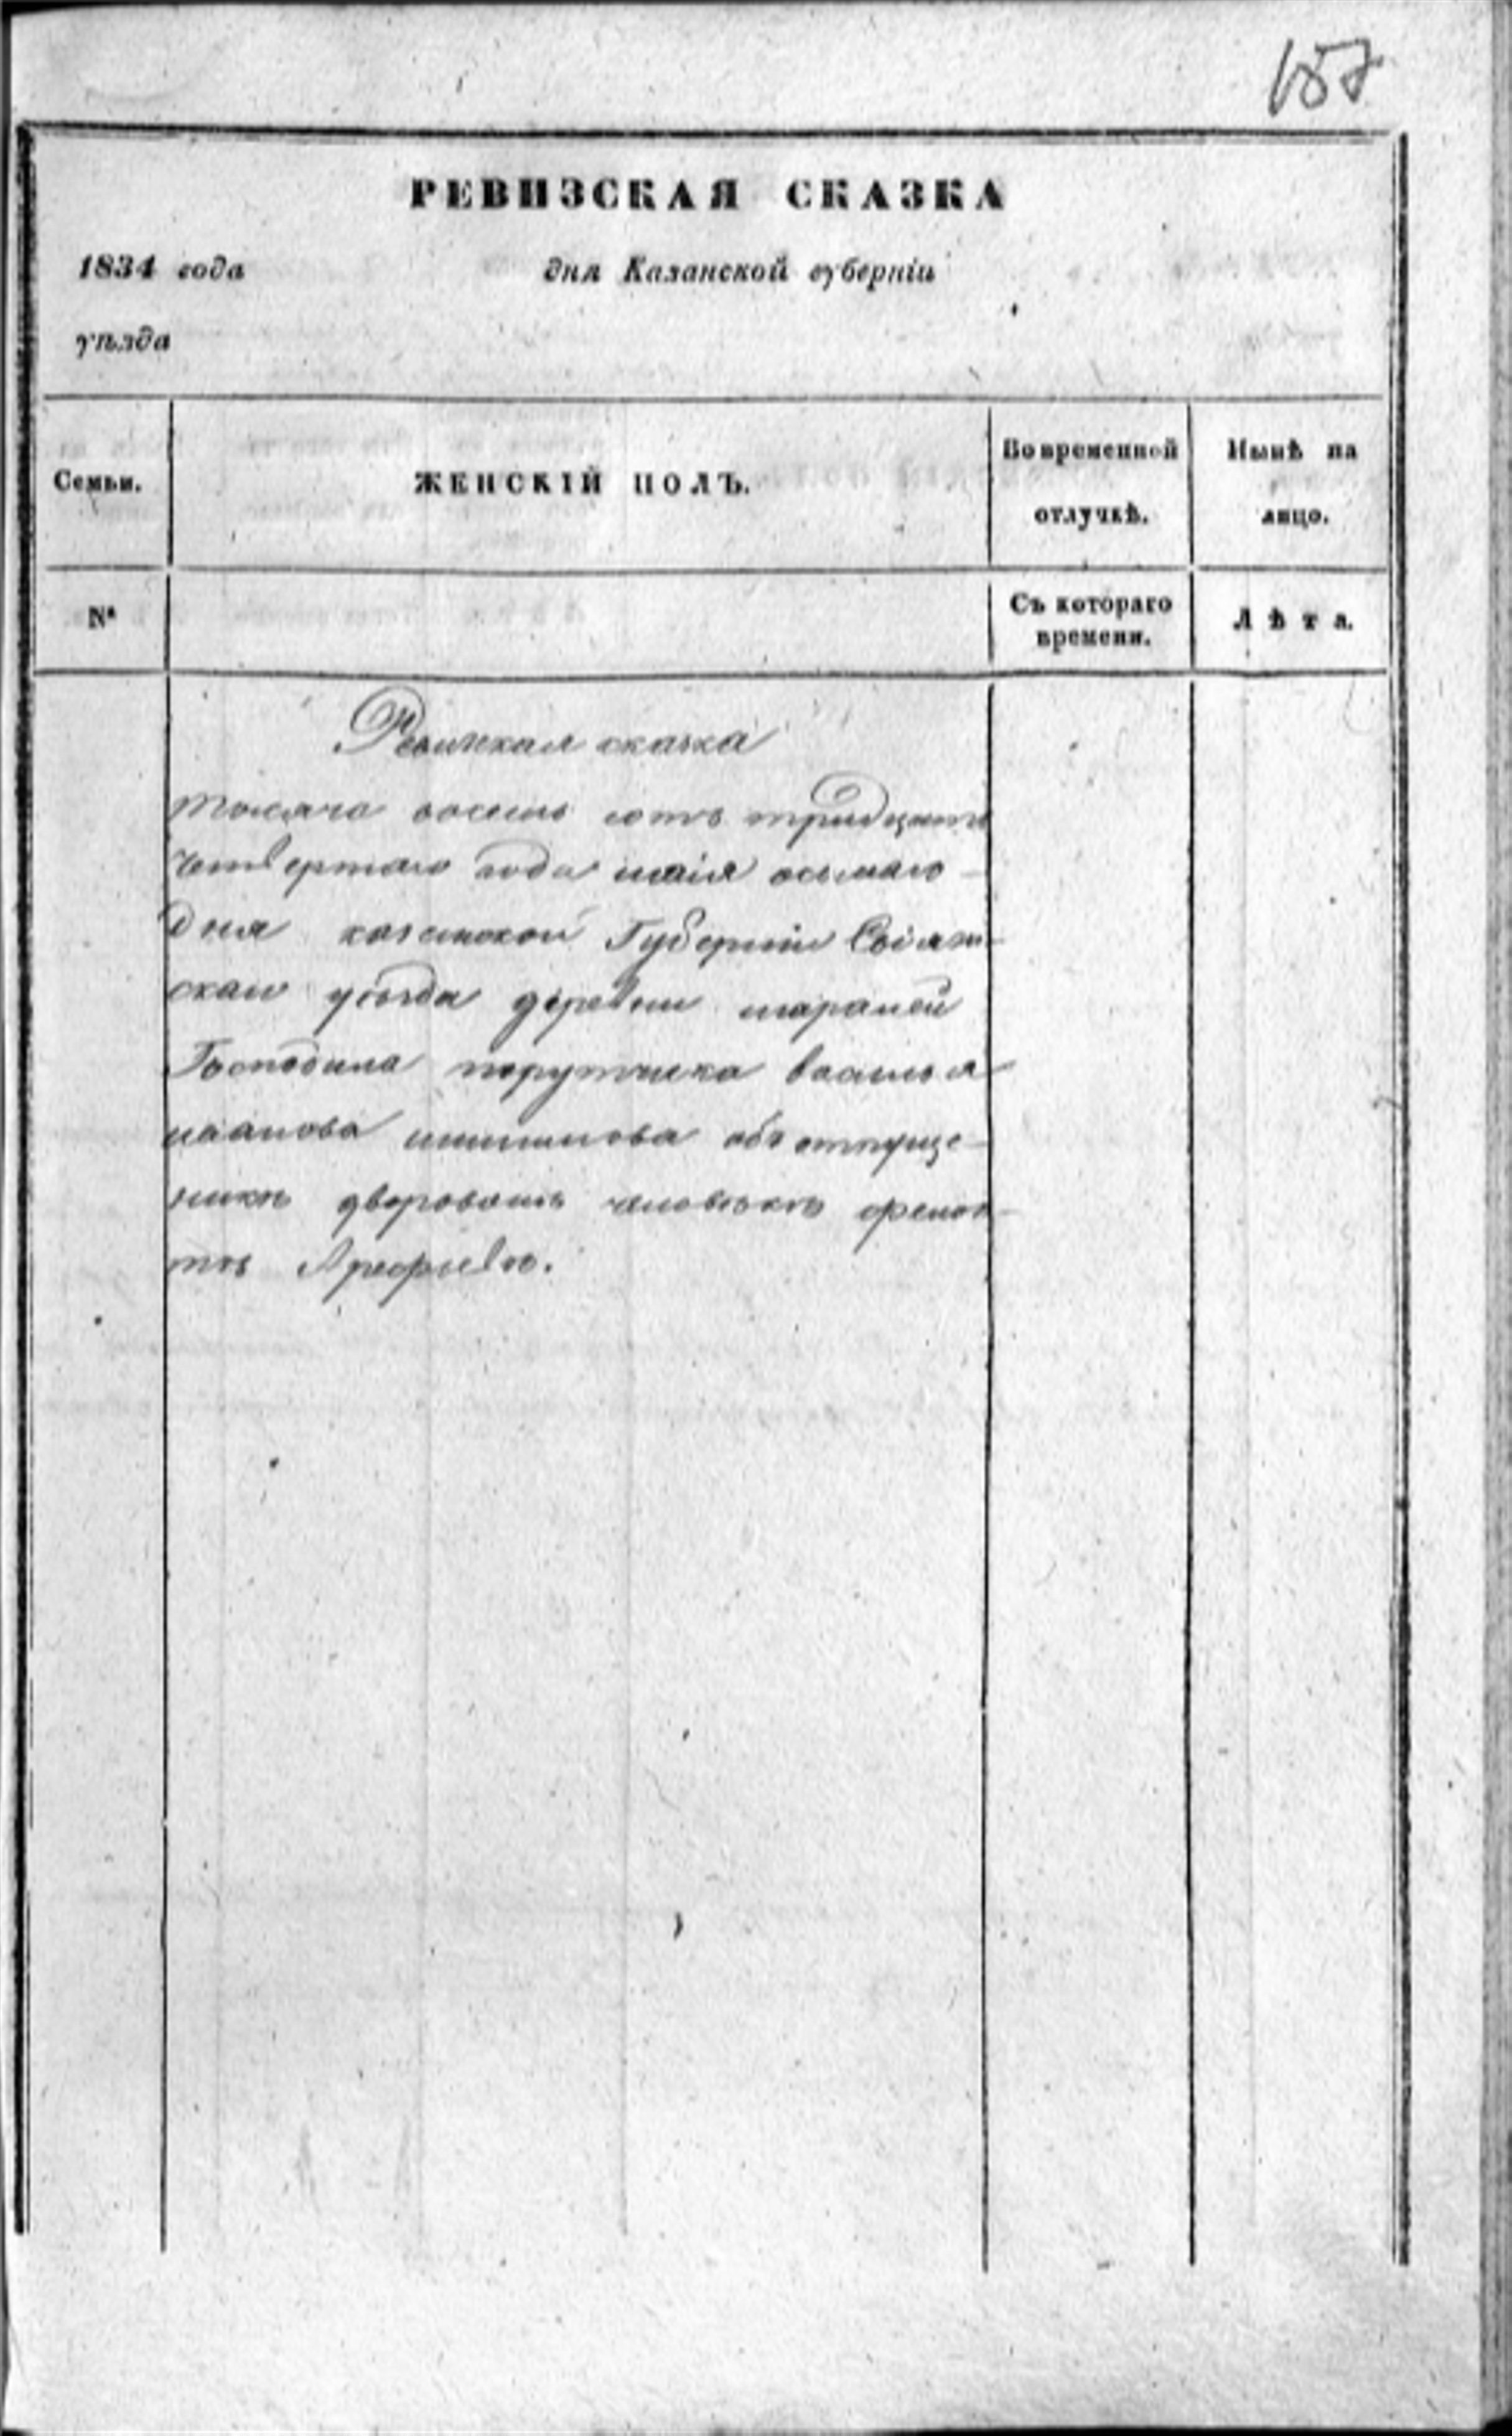 157
РЕВИЗСКАЯ СКАЗКА
1834 года дня Казанской губерніи
уѣзда
Семьи. ЖЕНСКІЙ ПОЛЪ. Во временной отлучкѣ. Нынѣ на лицо.
№ Съ котораго времени. Лѣта.
Ревижская сказка
тысяча восемь сотъ тридцать
четвертаго года маія осьмаго
дня казанской Губерніи Свіяж-
скаго уѣзда деревни
Господина порутчика василья
иванова обз отпуще-
никѣ дворовомъ человѣкѣ
Арефьевѣ.